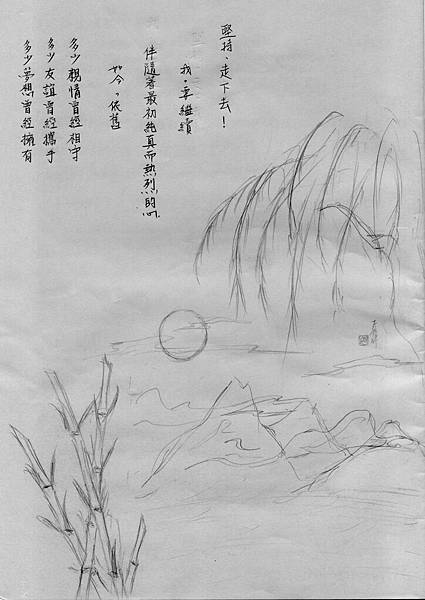 多少夢想曾經擁有
多少友誼曾經攜手
多少親情曾經相守
如今、依舊
伴隨著最初純真而熱烈的心
我、要繼續
堅持、走下去!